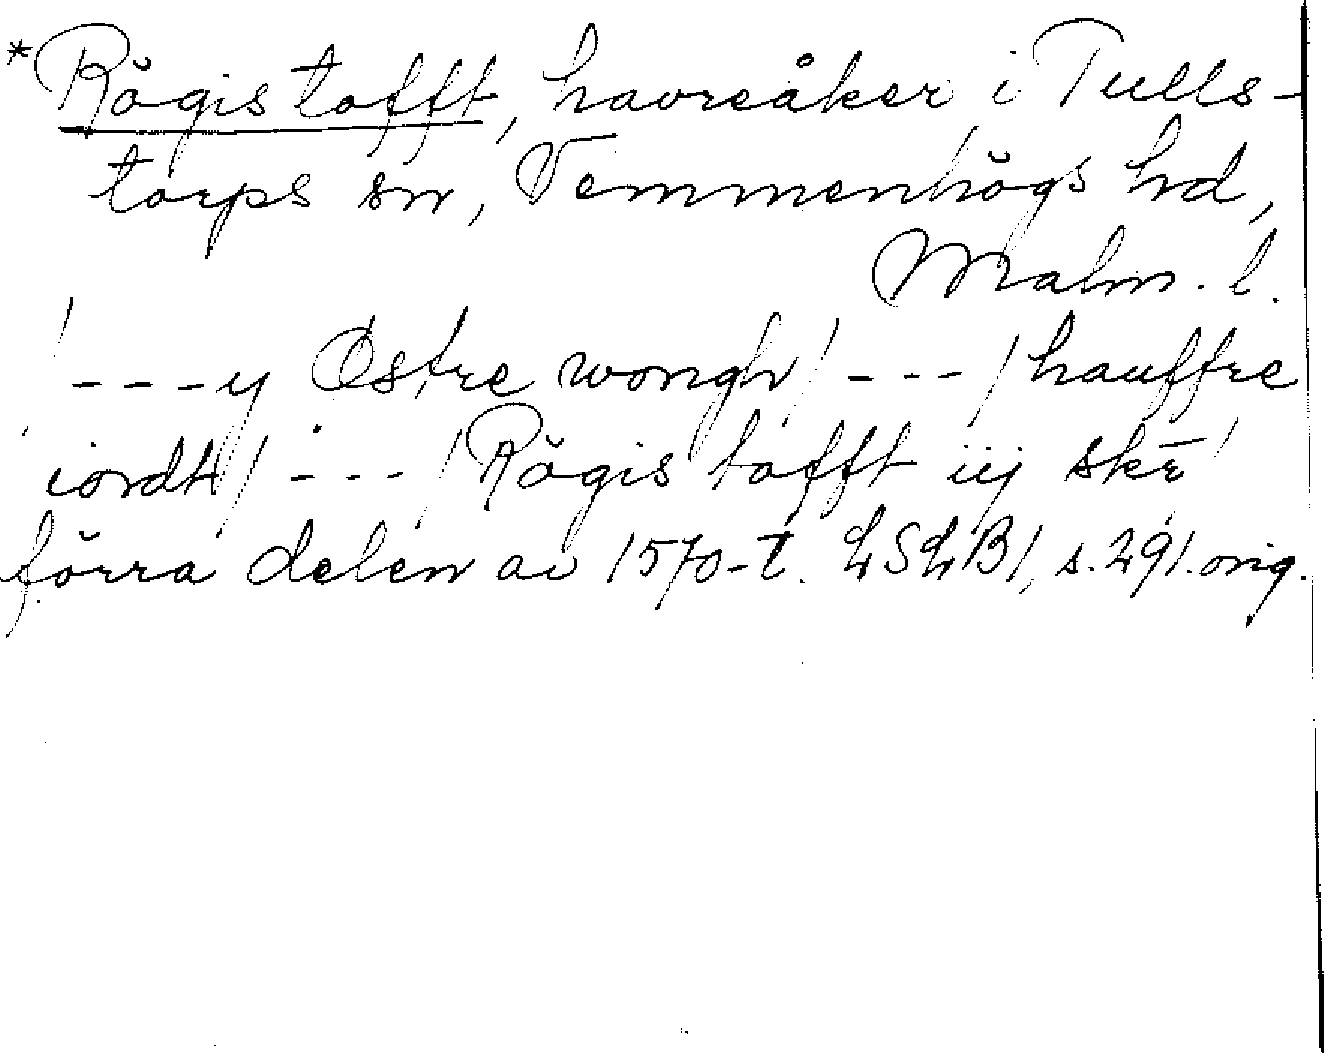 *Rögis tofft, havreåker i Tulls-
torps sn, Vemmenhögs hd,
Malm. l.
/---y Østre wongh/---/hauffre
iordh/---/Rögis tofft iij skē/
förra delen av 1570-t. LSLB1, s. 291. orig.